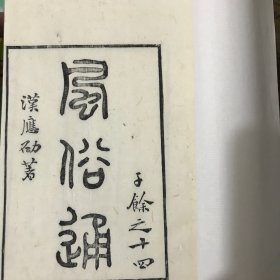 子餘之十四
風俗通
漢應劭著